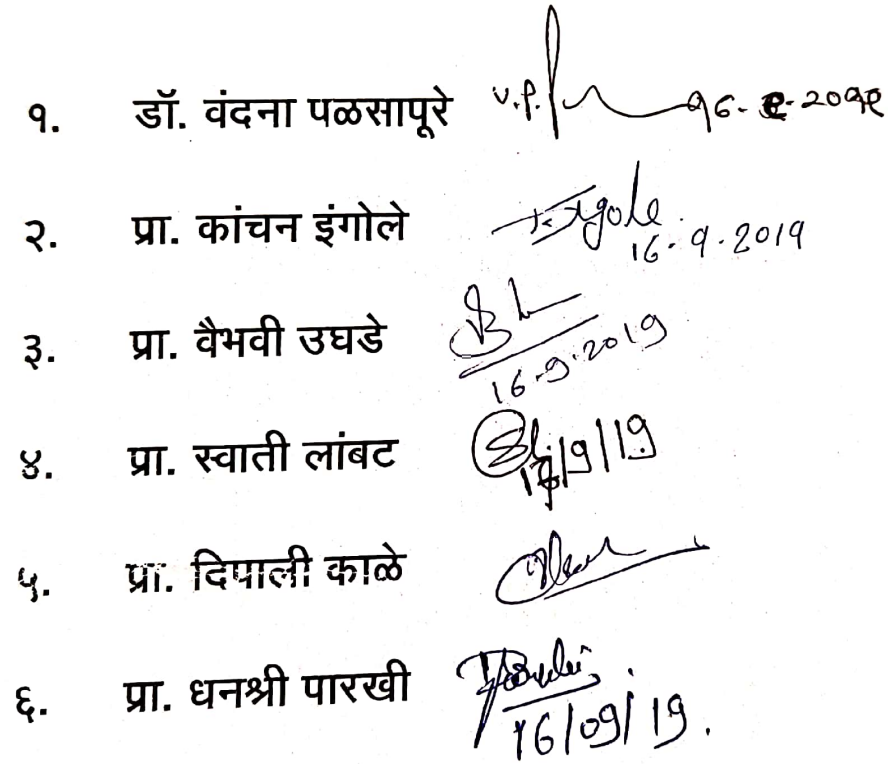 १. डॉ. वंदना पळसापूरे v.p. १६-९-२०१९
२. प्रा. कांचन इंगोले 16.9.2019
३. प्रा. वैभवी उघडे 16.9.2019
४. प्रा. स्वाती लांबट /9/19
५. प्रा. दिपाली काळे
६. प्रा. धनश्री पारखी 16/09/19.